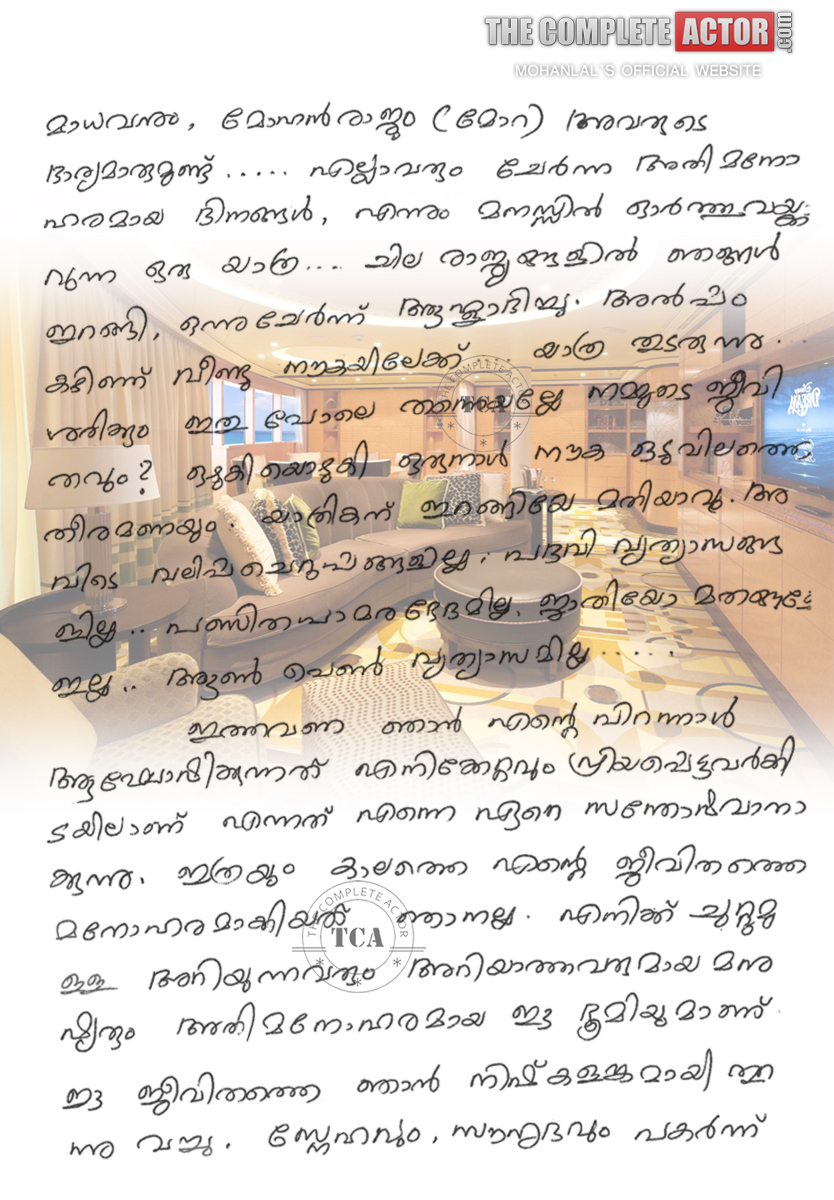 THE COMPLETE ACTOR .com
MOHANLAL`S OFFICIAL WEBSITE
മാധവനും, മോഹൻരാജും (മോറ) അവരുടെ
ഭാര്യമാരുമുണ്ട് ..... എല്ലാവരും ചേർന്ന അതിമനോ
ഹരമായ ദിനങ്ങൾ, എന്നും മനസ്സിൽ ഓർത്തുവയ്ക്കാ
വുന്ന ഒരു യാത്ര... ചില രാജ്യങ്ങളിൽ ഞങ്ങൾ
ഇറങ്ങി, ഒന്നുചേർന്ന് ആഹ്ലാദിച്ചു. അൽപം
കഴിഞ്ഞ് വീണ്ടും നൗകയിലേക്ക് .. യാത്ര തുടരുന്നു ..
ശരിക്കും ഇതു പോലെ തന്നെയല്ലേ നമ്മുടെ ജീവി
തവും? ഒഴുകിയൊഴുകി ഒരുനാൾ നൗക ഒടുവിലത്തെ
തീരമണയും. യാത്രികന് ഇറങ്ങിയേ മതിയാവൂ. അ
വിടെ വലിപ്പചെറുപ്പങ്ങളില്ല; പദവി വ്യത്യാസങ്ങ
ളില്ല .. പണ്ഡിതപാമരഭേദമില്ല. ജാതിയോ മതങ്ങളോ
ഇല്ല .. ആൺ പെൺ വ്യത്യാസമില്ല......
ഇത്തവണ ഞാൻ എന്റെ പിറന്നാൾ
ആഘോഷിക്കുന്നത് എനിക്കേറ്റവും പ്രിയപ്പെട്ടവർക്കി
ടയിലാണ് എന്നത് എന്നെ ഏറെ സന്തോഷവാനാ
ക്കുന്നു. ഇത്രയും കാലത്തെ എന്റെ ജീവിതത്തെ
മനോഹരമാക്കിയത് ഞാനല്ല. എനിക്ക് ചുറ്റുമു
ള്ള അറിയുന്നവരും അറിയാത്തവരുമായ മനു
ഷ്യരും അതിമനോഹരമായ ഈ ഭൂമിയുമാണ്.
ഈ ജീവിതത്തെ ഞാൻ നിഷ്കളങ്കമായി
ന്നു വച്ചു. സ്നേഹവും, സൗഹൃദവും പകർന്ന്
THE COMPLETE ACTOR
TCA